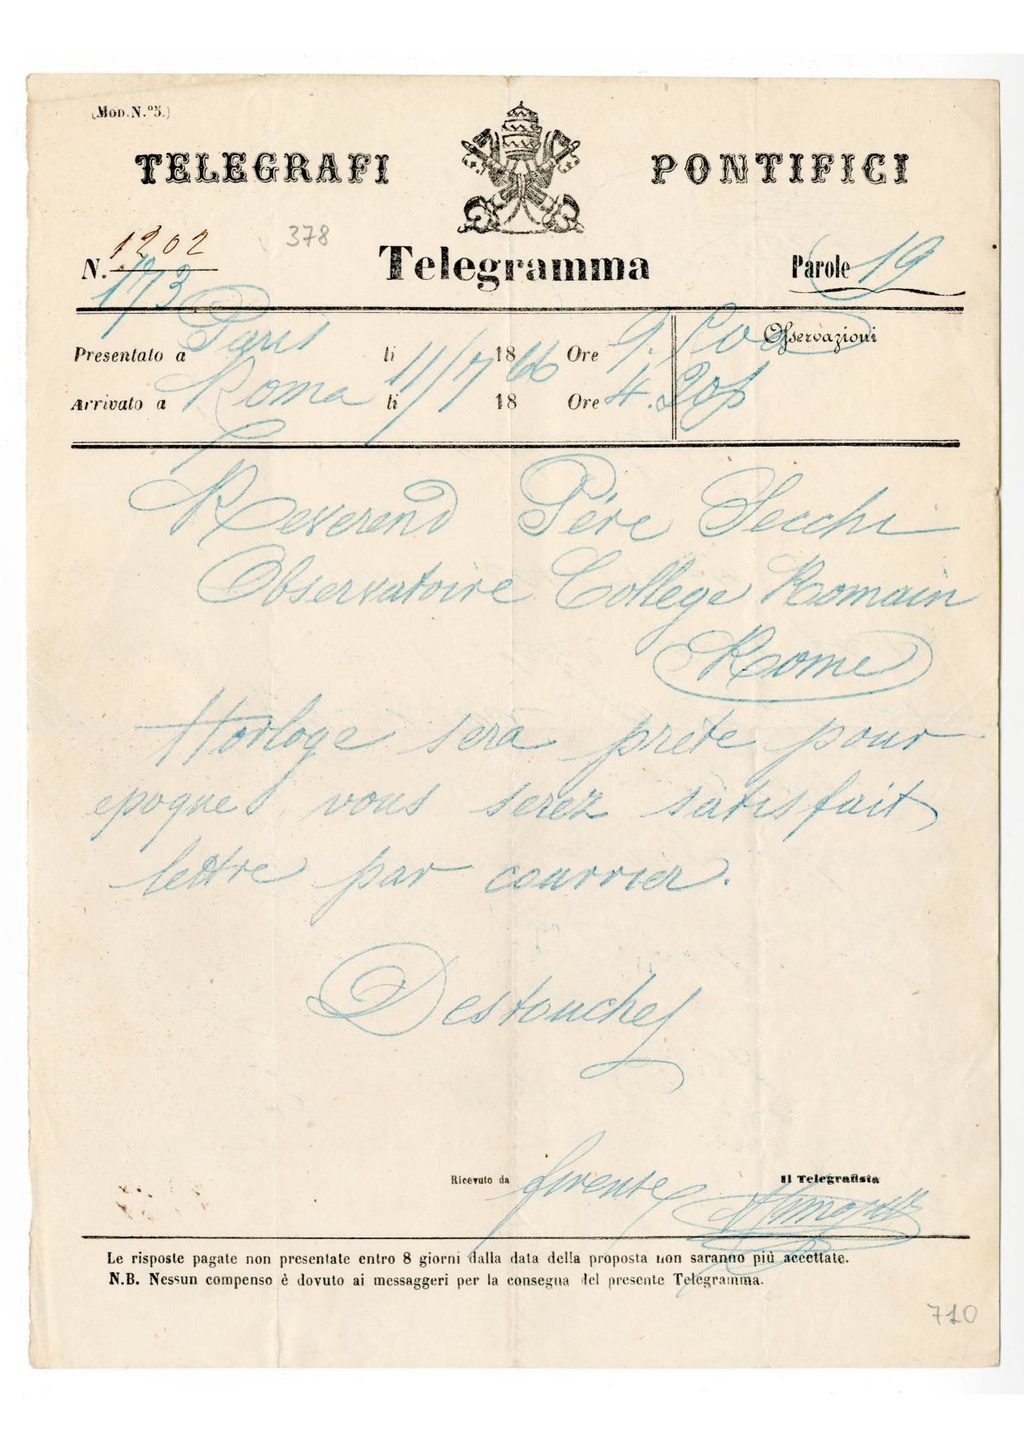 (Mod. N.º 5.)
TELEGRAFI PONTIFICI
1202 378
N. 173 Telegramma Parole 19
Osservazioni
Presentato a Paris li 11/7 1866 Ore 9.
Arrivato a Roma li 18 Ore 4.20 p
Reverend Père Secchi
Observatoire College Romain
Rome
Horloge sera prète pour
epoque vous serez satisfait
lettre par courrier.
Destouches
Ricevuto da firenze Il Telegrafista
Le risposte pagate non presentate entro 8 giorni dalla data della proposta non saranno più accettate.
N.B. Nessun compenso è dovuto ai messaggeri per la consegna del presente Telegramma.
710